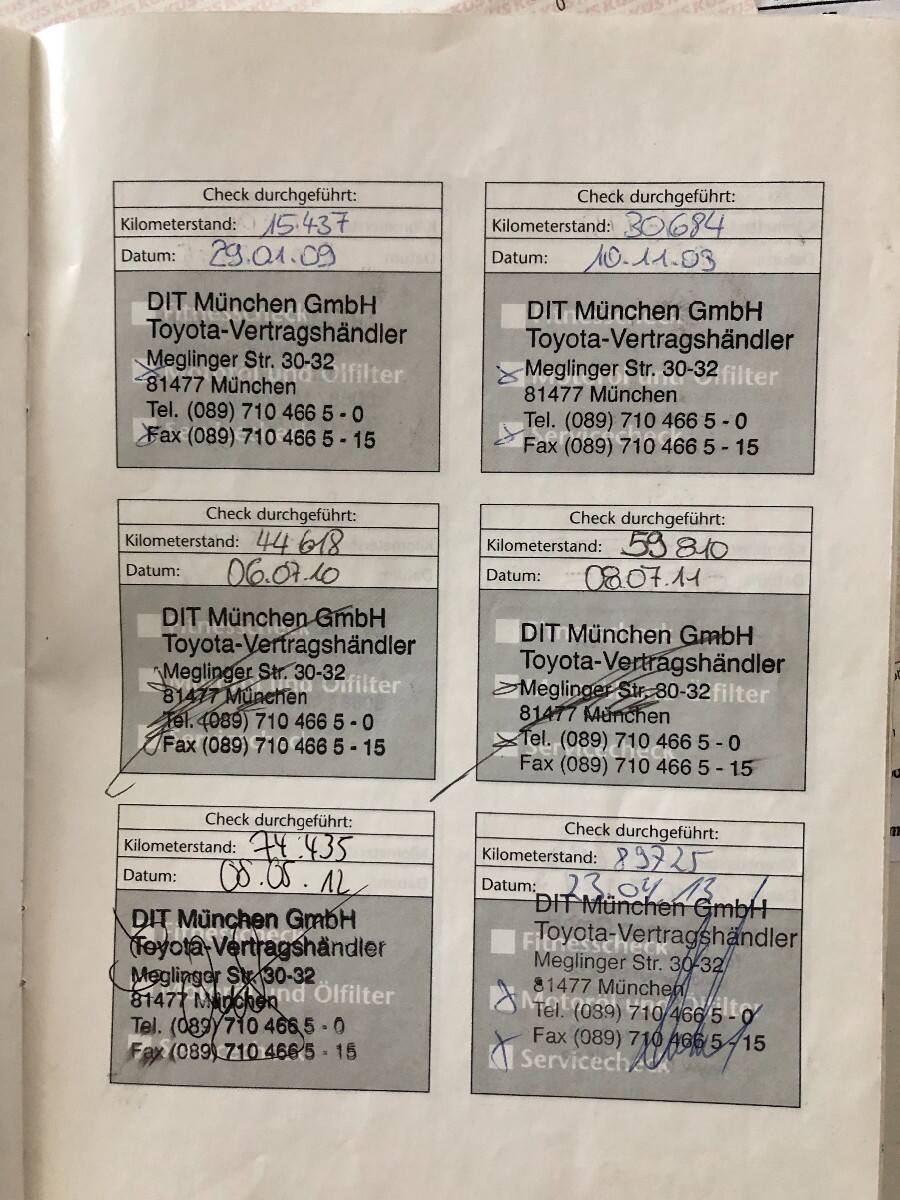 Check durchgeführt:
Kilometerstand: 15.437
Datum: 29.01.09
DIT München GmbH
Toyota-Vertragshändler
Meglinger Str. 30-32
81477 München
Tel. (089) 710 466 5 - 0
Fax (089) 710 466 5 - 15
Ölfilter
Check durchgeführt:
Kilometerstand: 30684
Datum: 10.11.09
Fitnesscheck
DIT München GmbH
Toyota-Vertragshändler
Meglinger Str. 30-32
Motoröl und Ölfilter
81477 München
Tel. (089) 710 466 5 - 0
Servicecheck
Fax (089) 710 466 5 - 15
Check durchgeführt:
Kilometerstand: 44 618
Datum: 06.07.10
DIT München GmbH
Fitnesscheck
Toyota-Vertragshändler
Meglinger Str. 30-32
Motoröl und Ölfilter
81477 München
Tel. (089) 710 466 5 - 0
Servicecheck
Fax (089) 710 466 5 - 15
Check durchgeführt:
Kilometerstand: 59 810
Datum: 08.07.11
Fitnesscheck
DIT München GmbH
Toyota-Vertragshändler
Motoröl und Ölfilter
Meglinger Str. 30-32
81477 München
Tel. (089) 710 466 5 - 0
Servicecheck
Fax (089) 710 466 5 - 15
Check durchgeführt:
Kilometerstand: 74.435
Datum: 08.05.12
DIT München GmbH
Fitnesscheck
Toyota-Vertragshändler
Meglinger Str. 30-32
81477 München
und Ölfilter
Tel. (089) 710 466 5 - 0
Fax (089) 710 466 5 - 15
Check durchgeführt:
Kilometerstand: 89725
Datum: 23.04.13
DIT München GmbH
Toyota-Vertragshändler
Fitnesscheck
Meglinger Str. 30-32
81477 München
Motoröl und Ölfilter
Tel. (089) 710 466 5 - 0
Fax (089) 710 466 5 - 15
Servicecheck